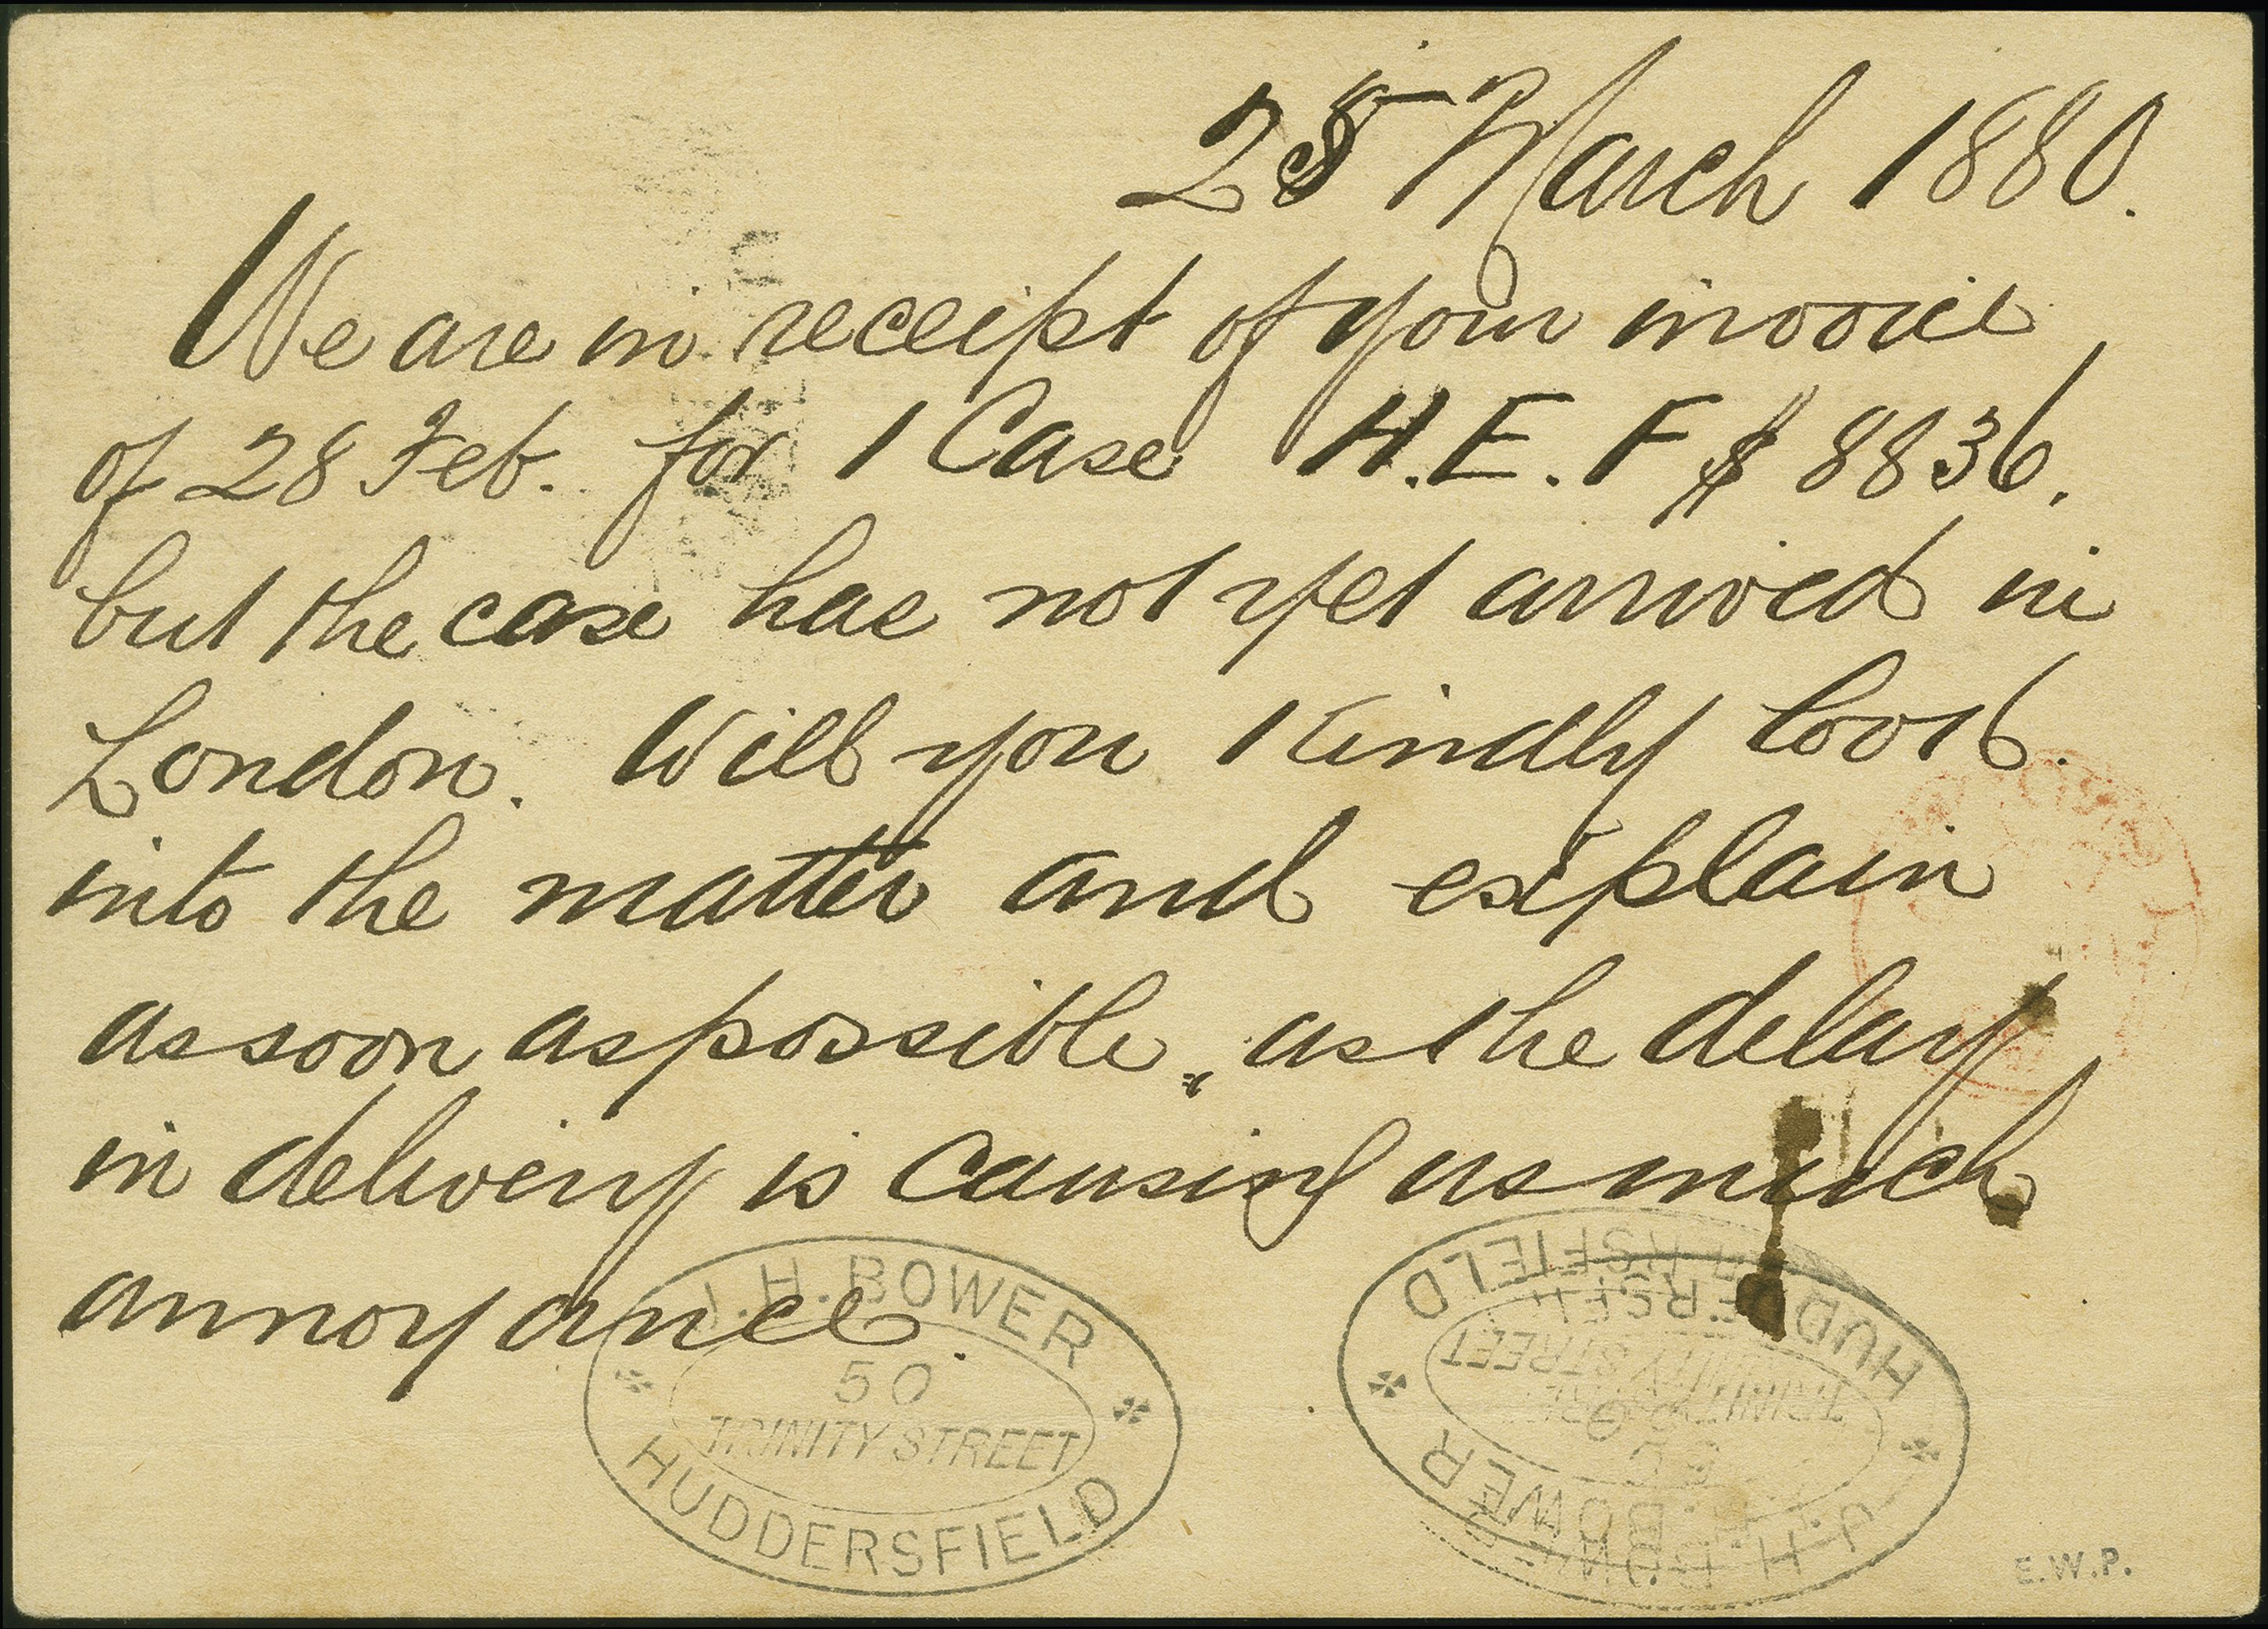 25 March 1880.
We are in receipt of your invoice
of 28 Feb. for 1 Case H.E.F $ 8836,
but the case has not yet arrived in
London. Will you kindly look
into the matter and explain
as soon as possible, as the delay
in delivery is causing us much
annoyance.
J.H. BOWER
50
TRINITY STREET
HUDDERSFIELD
HUDDERSFIELD
TRINITY STREET
J.H. BOWER
E.W.P.